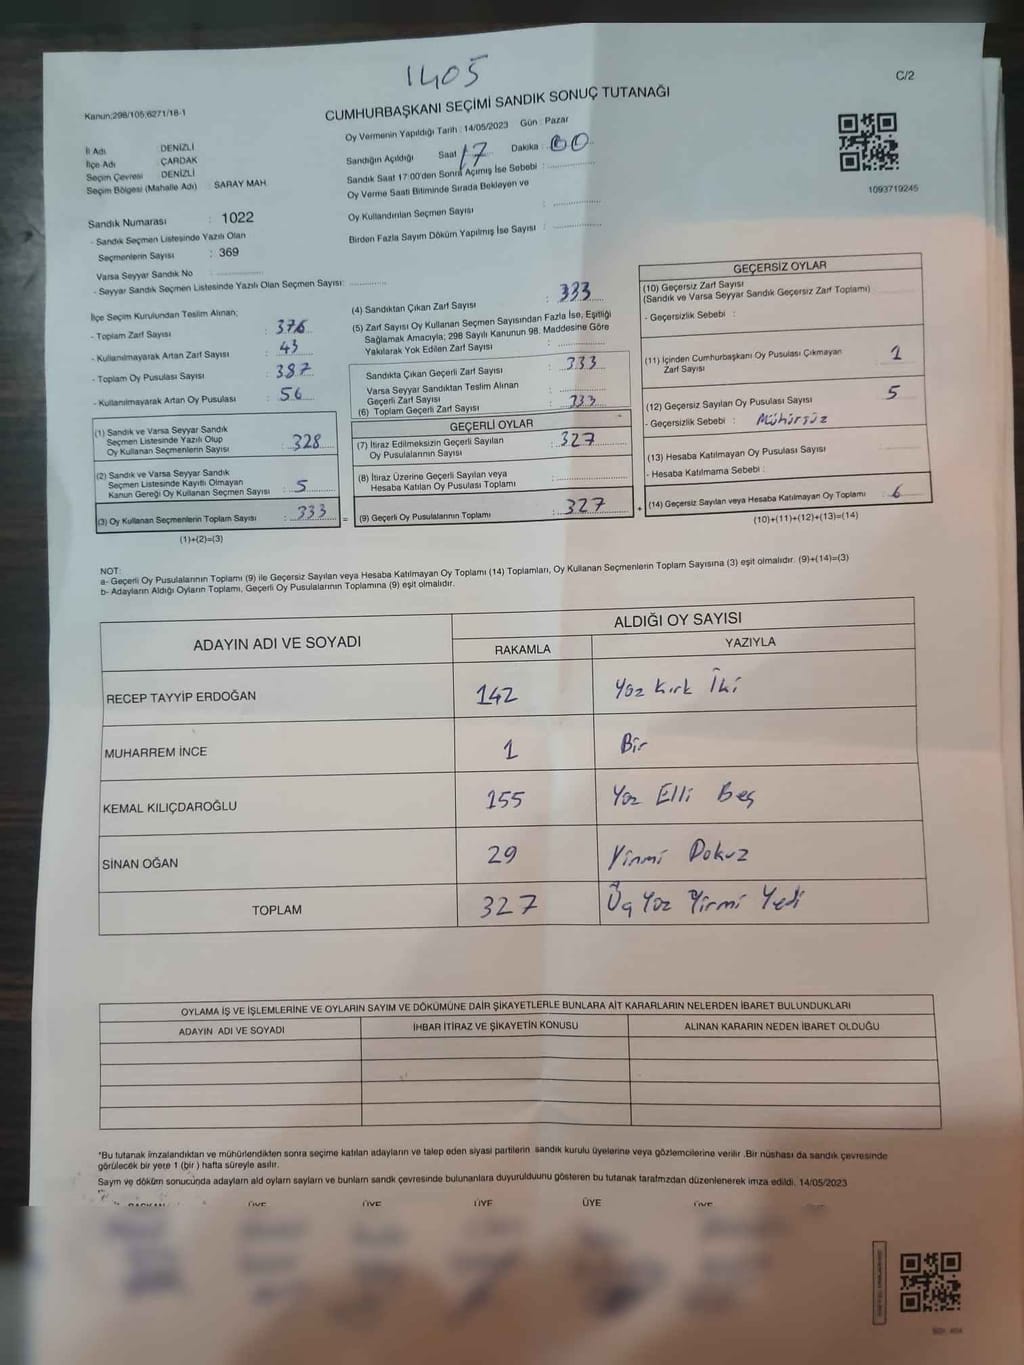 1405
C/2
Kanun;298/105;6271/18-1
CUMHURBAŞKANI SEÇİMİ SANDIK SONUÇ TUTANAĞI
Oy Vermenin Yapıldığı Tarih : 14/05/2023 Gün : Pazar
İl Adı DENİZLİ
İlçe Adı ÇARDAK
Seçim Çevresi DENİZLİ
Seçim Bölgesi (Mahalle Adı) SARAY MAH.
Sandığın Açıldığı Saat 17 Dakika 00
Sandık Saat 17:00'den Sonra Açımış İse Sebebi :
Oy Verme Saati Bitiminde Sırada Bekleyen ve
Oy Kullandırılan Seçmen Sayısı :
Birden Fazla Sayım Döküm Yapılmış İse Sayısı :
1093719245
Sandık Numarası : 1022
- Sandık Seçmen Listesinde Yazılı Olan
Seçmenlerin Sayısı : 369
Varsa Seyyar Sandık No :
- Seyyar Sandık Seçmen Listesinde Yazılı Olan Seçmen Sayısı:
İlçe Seçim Kurulundan Teslim Alınan;
- Toplam Zarf Sayısı : 376
- Kullanılmayarak Artan Zarf Sayısı : 43
- Toplam Oy Pusulası Sayısı : 387
- Kullanılmayarak Artan Oy Pusulası : 56
(1) Sandık ve Varsa Seyyar Sandık
Seçmen Listesinde Yazılı Olup
Oy Kullanan Seçmenlerin Sayısı : 328
(2) Sandık ve Varsa Seyyar Sandık
Seçmen Listesinde Kayıtlı Olmayan
Kanun Gereği Oy Kullanan Seçmen Sayısı : 5
(3) Oy Kullanan Seçmenlerin Toplam Sayısı : 333 =
(1)+(2)=(3)
(4) Sandıktan Çıkan Zarf Sayısı : 333
(5) Zarf Sayısı Oy Kullanan Seçmen Sayısından Fazla İse, Eşitliği
Sağlamak Amacıyla; 298 Sayılı Kanunun 98. Maddesine Göre
Yakılarak Yok Edilen Zarf Sayısı :
Sandıkta Çıkan Geçerli Zarf Sayısı : 333
Varsa Seyyar Sandıktan Teslim Alınan
Geçerli Zarf Sayısı :
(6) Toplam Geçerli Zarf Sayısı : 333
GEÇERLİ OYLAR
(7) İtiraz Edilmeksizin Geçerli Sayılan
Oy Pusulalarının Sayısı : 327
(8) İtiraz Üzerine Geçerli Sayılan veya
Hesaba Katılan Oy Pusulası Toplamı :
(9) Geçerli Oy Pusulalarının Toplamı : 327 +
GEÇERSİZ OYLAR
(10) Geçersiz Zarf Sayısı
(Sandık ve Varsa Seyyar Sandık Geçersiz Zarf Toplamı)
- Geçersizlik Sebebi :
(11) İçinden Cumhurbaşkanı Oy Pusulası Çıkmayan
Zarf Sayısı 1
(12) Geçersiz Sayılan Oy Pusulası Sayısı 5
- Geçersizlik Sebebi : Mühürsüz
(13) Hesaba Katılmayan Oy Pusulası Sayısı
- Hesaba Katılmama Sebebi :
(14) Geçersiz Sayılan veya Hesaba Katılmayan Oy Toplamı 6
(10)+(11)+(12)+(13)=(14)
NOT:
a- Geçerli Oy Pusulalarının Toplamı (9) ile Geçersiz Sayılan veya Hesaba Katılmayan Oy Toplamı (14) Toplamları, Oy Kullanan Seçmenlerin Toplam Sayısına (3) eşit olmalıdır. (9)+(14)=(3)
b- Adayların Aldığı Oyların Toplamı, Geçerli Oy Pusulalarının Toplamına (9) eşit olmalıdır.
ADAYIN ADI VE SOYADI ALDIĞI OY SAYISI
RAKAMLA YAZIYLA
RECEP TAYYİP ERDOĞAN 142 Yüz Kırk İki
MUHARREM İNCE 1 Bir
KEMAL KILIÇDAROĞLU 155 Yüz Elli Beş
SİNAN OĞAN 29 Yirmi Dokuz
TOPLAM 327 Üç Yüz Yirmi Yedi
OYLAMA İŞ VE İŞLEMLERİNE VE OYLARIN SAYIM VE DÖKÜMÜNE DAİR ŞİKAYETLERLE BUNLARA AİT KARARLARIN NELERDEN İBARET BULUNDUKLARI
ADAYIN ADI VE SOYADI İHBAR İTİRAZ VE ŞİKAYETİN KONUSU ALINAN KARARIN NEDEN İBARET OLDUĞU
*Bu tutanak imzalandıktan ve mühürlendikten sonra seçime katılan adayların ve talep eden siyasi partilerin sandık kurulu üyelerine veya gözlemcilerine verilir .Bir nüshası da sandık çevresinde
görülecek bir yere 1 (bir ) hafta süreyle asılır.
Sayım ve döküm sonucunda adayların ald oyların sayları ve bunların sandk çevresinde bulunanlara duyurulduunu gösteren bu tutanak tarafmzdan düzenlenerek imza edildi. 14/05/2023
BAŞKAN ÜYE ÜYE ÜYE ÜYE ÜYE